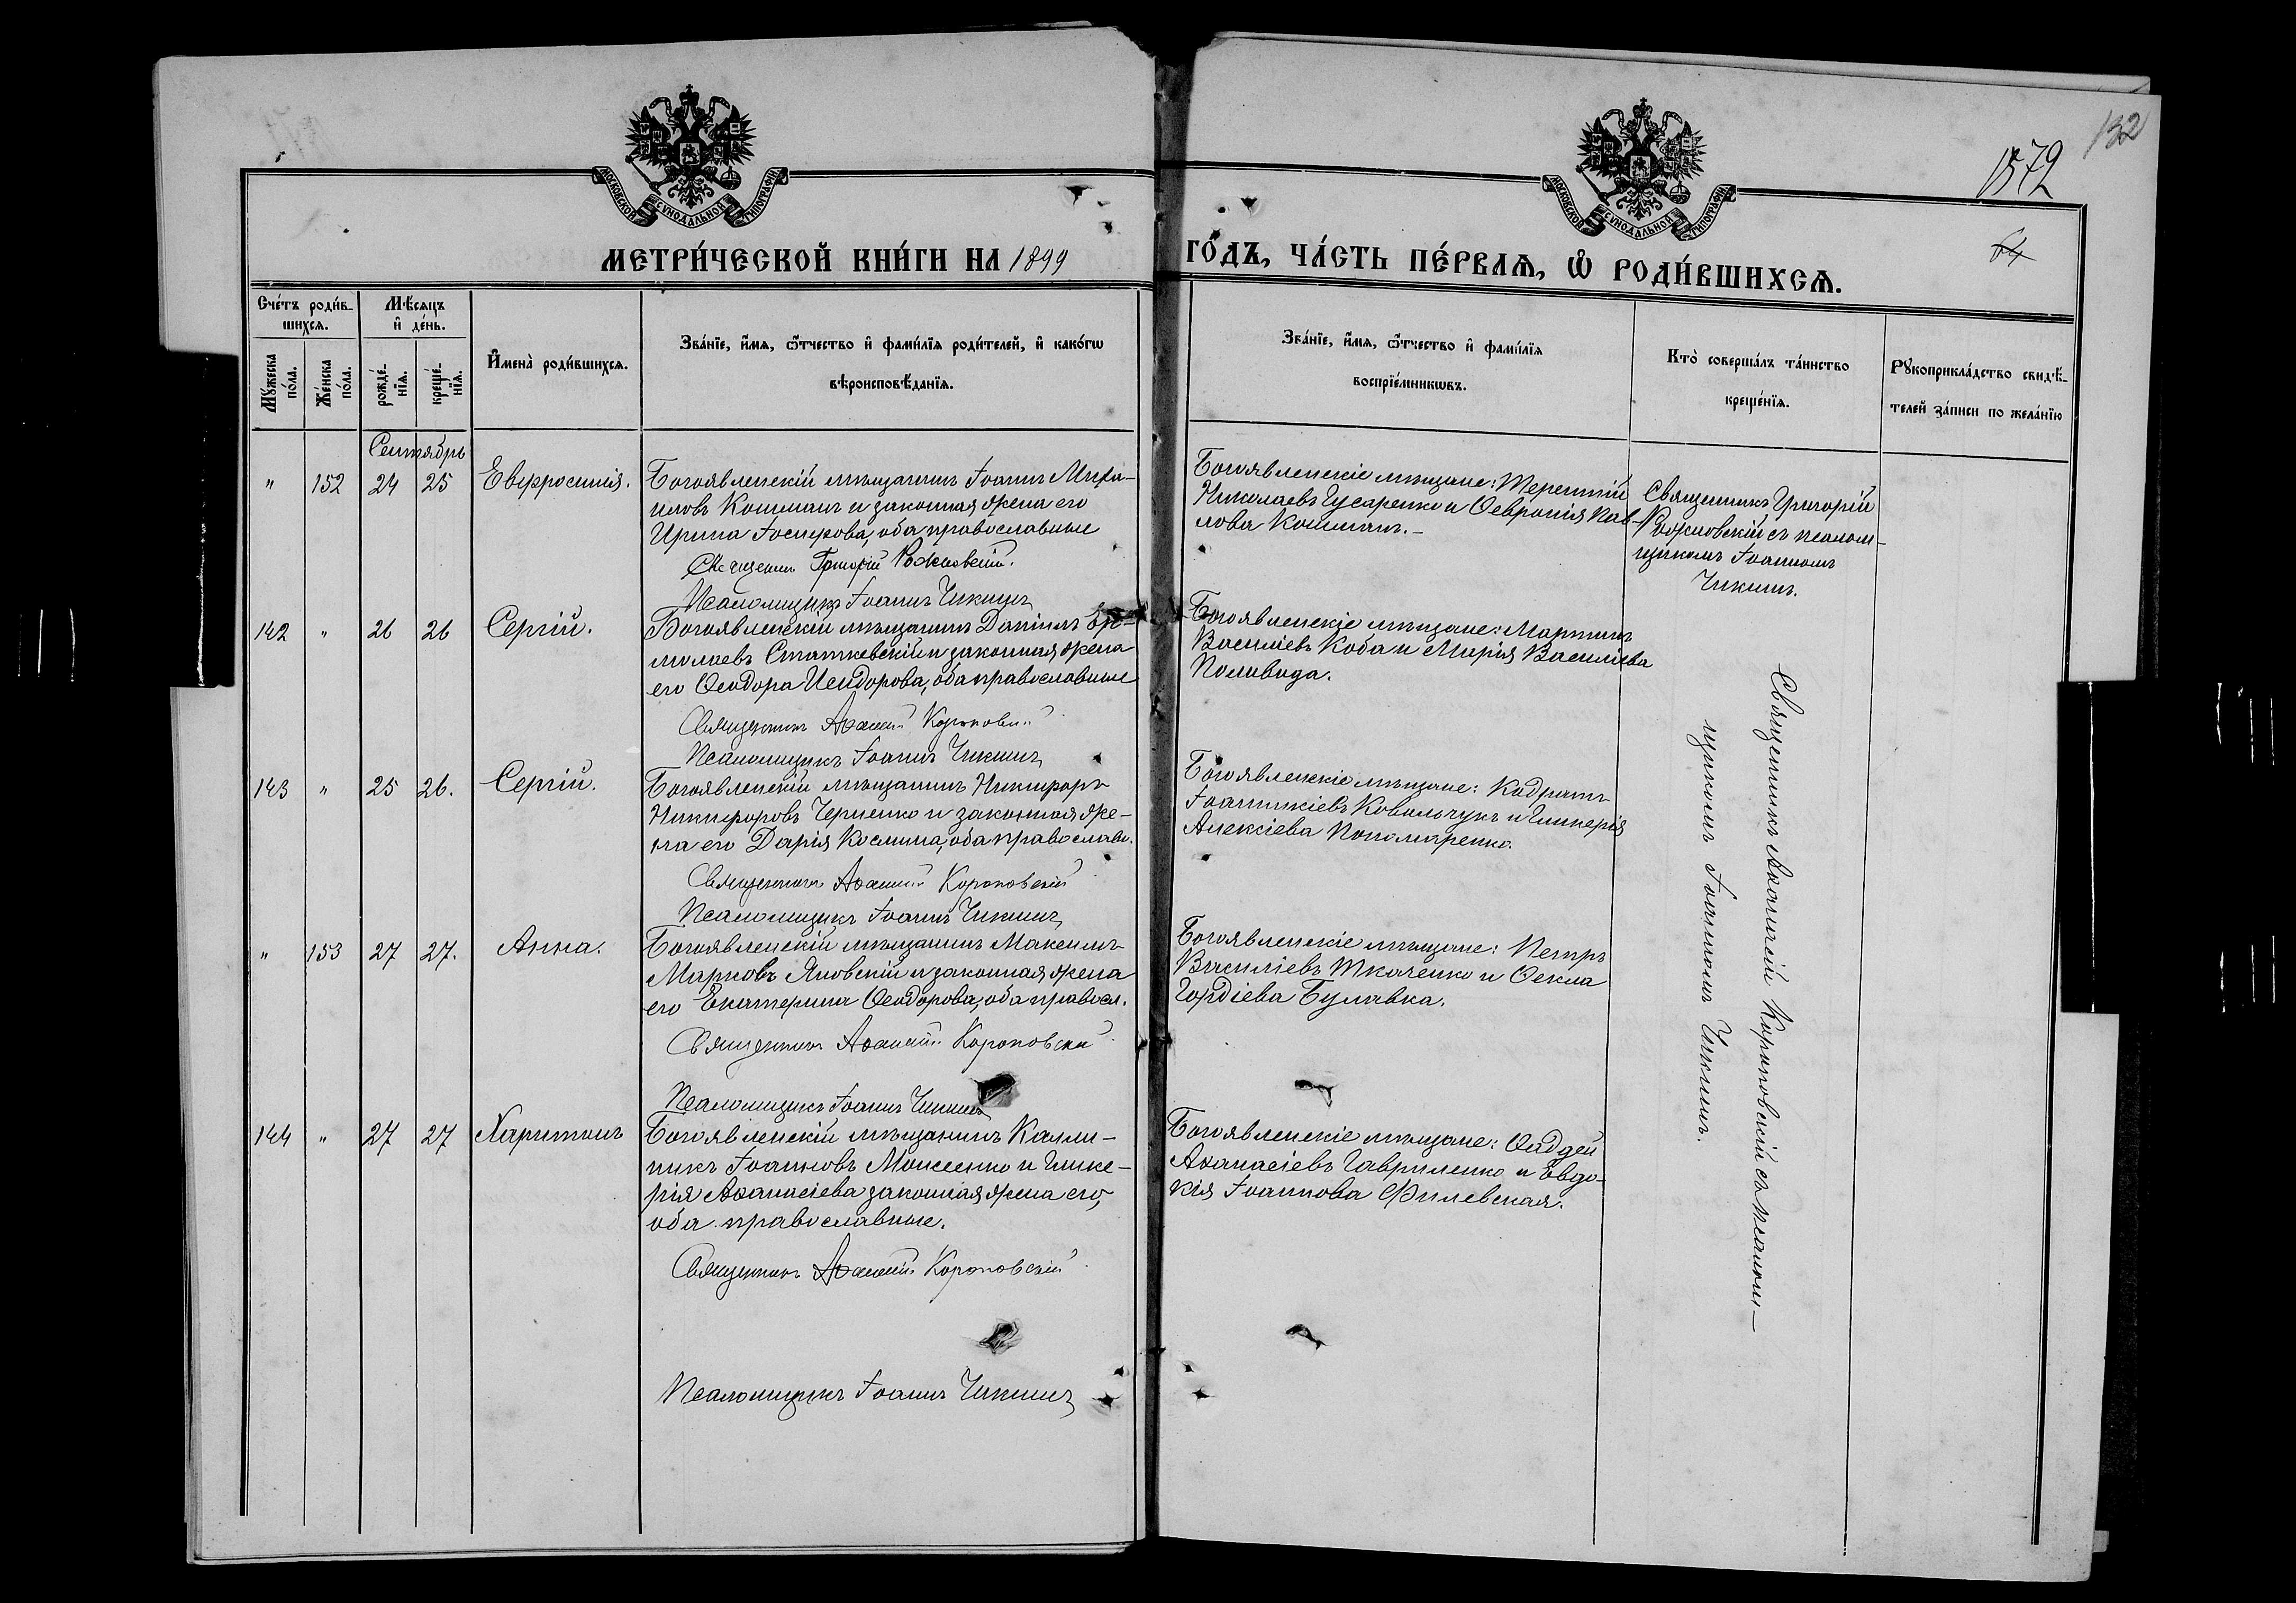 132
1572
МОСКОВСКОЙ СѴНОДАЛЬНОЙ ТИПОГРАФІИ
МОСКОВСКОЙ СѴНОДАЛЬНОЙ ТИПОГРАФІИ
МЕТРИ́ЧЕСКОЙ КНИ́ГИ НА 1899
ГО́ДЪ, ЧА́СТЬ ПЕ́РВАѦ, Ѽ РОДИ́ВШИХСѦ.
64
Сче́тъ роди́в-
шихсѧ.
Мꙋ́жеска
по́ла.
Же́нска
по́ла.
Мѣ́сѧцъ
и҆ де́нь.
рожде́-
нїѧ.
креще́-
нїѧ.
И҆мена̀ роди́вшихсѧ.
Зва́нїе, и҆́мѧ, ѻ҆́тчество и҆ фами́лїѧ роди́телей, и҆ како́гѡ
вѣроисповѣ́данїѧ.
Зва́нїе, и҆́мѧ, ѻ҆́тчество и҆ фами́лїѧ
воспрїе́мникѡвъ.
Кто̀ соверша́лъ та́инство
креще́нїѧ.
Рꙋкоприкла́дство свидѣ́-
телей за́писи по жела́нїю
Сентябрь
" 152 24 25 Евфросинія.
Богоявленскій мѣщанинъ Іоаннъ Миха-
иловъ Кошманъ и законная жена его
Ирина Іосифова, оба православные
Священник Григорій Рожновскій.
Псаломщикъ Іоаннъ Чикинъ
Богоявленскіе мѣщане: Терентій
Николаевъ Гусаренко и Ѳевронія Пав-
лова Кошманъ.-
Священникъ Григорій
Рожновскій съ псалом-
щикомъ Іоанномъ
Чикинъ.
142 " 26 26 Сергій.
Богоявленскій мѣщанинъ Даніилъ Ер-
молаевъ Статкевскій и законная жена
его Ѳеодора Исидорова, оба православные
Священникъ Аѳанасій Короновскій
Псаломщикъ Іоаннъ Чикинъ
Богоявленскіе мѣщане: Мартинъ
Василіевъ Коба и Марія Василіева
Поливода.
143 " 25 26. Сергій.
Богоявленскій мѣщанинъ Никифоръ
Никифоровъ Черненко и законная же-
на его Дарія Космина, оба православн.
Священникъ Аѳанасій Короновскій
Псаломщикъ Іоаннъ Чикинъ
Богоявленскіе мѣщане: Кодратъ
Іоанникіевъ Ковальчукъ и Гликерія
Алексіева Пономаренко.
" 153 27 27. Анна.
Богоявленскій мѣщанинъ Максимъ
Марковъ Яновскій и законная жена
его Екатерина Ѳеодорова, оба правосл.
Священникъ Аѳанасій Короновскій
Псаломщикъ Іоаннъ Чикинъ
Богоявленскіе мѣщане: Петръ
Василіевъ Ткаченко и Ѳекла
Гордіева Булавка.
144 " 27 27 Харитонъ
Богоявленскій мѣщанинъ Калли-
никъ Іоанновъ Моисеенко и Глике-
рія Аѳанасіева законная жена его,
оба православные.
Священникъ Аѳанасій Короновскій
Псаломщикъ Іоаннъ Чикинъ
Богоявленскіе мѣщане: Ѳаддей
Аѳанасіевъ Гавриленко и Евдо-
кія Іоаннова Филевская.
Священникъ Аѳанасій Короновскій съ псалом-
щикомъ Іоанномъ Чикинъ.